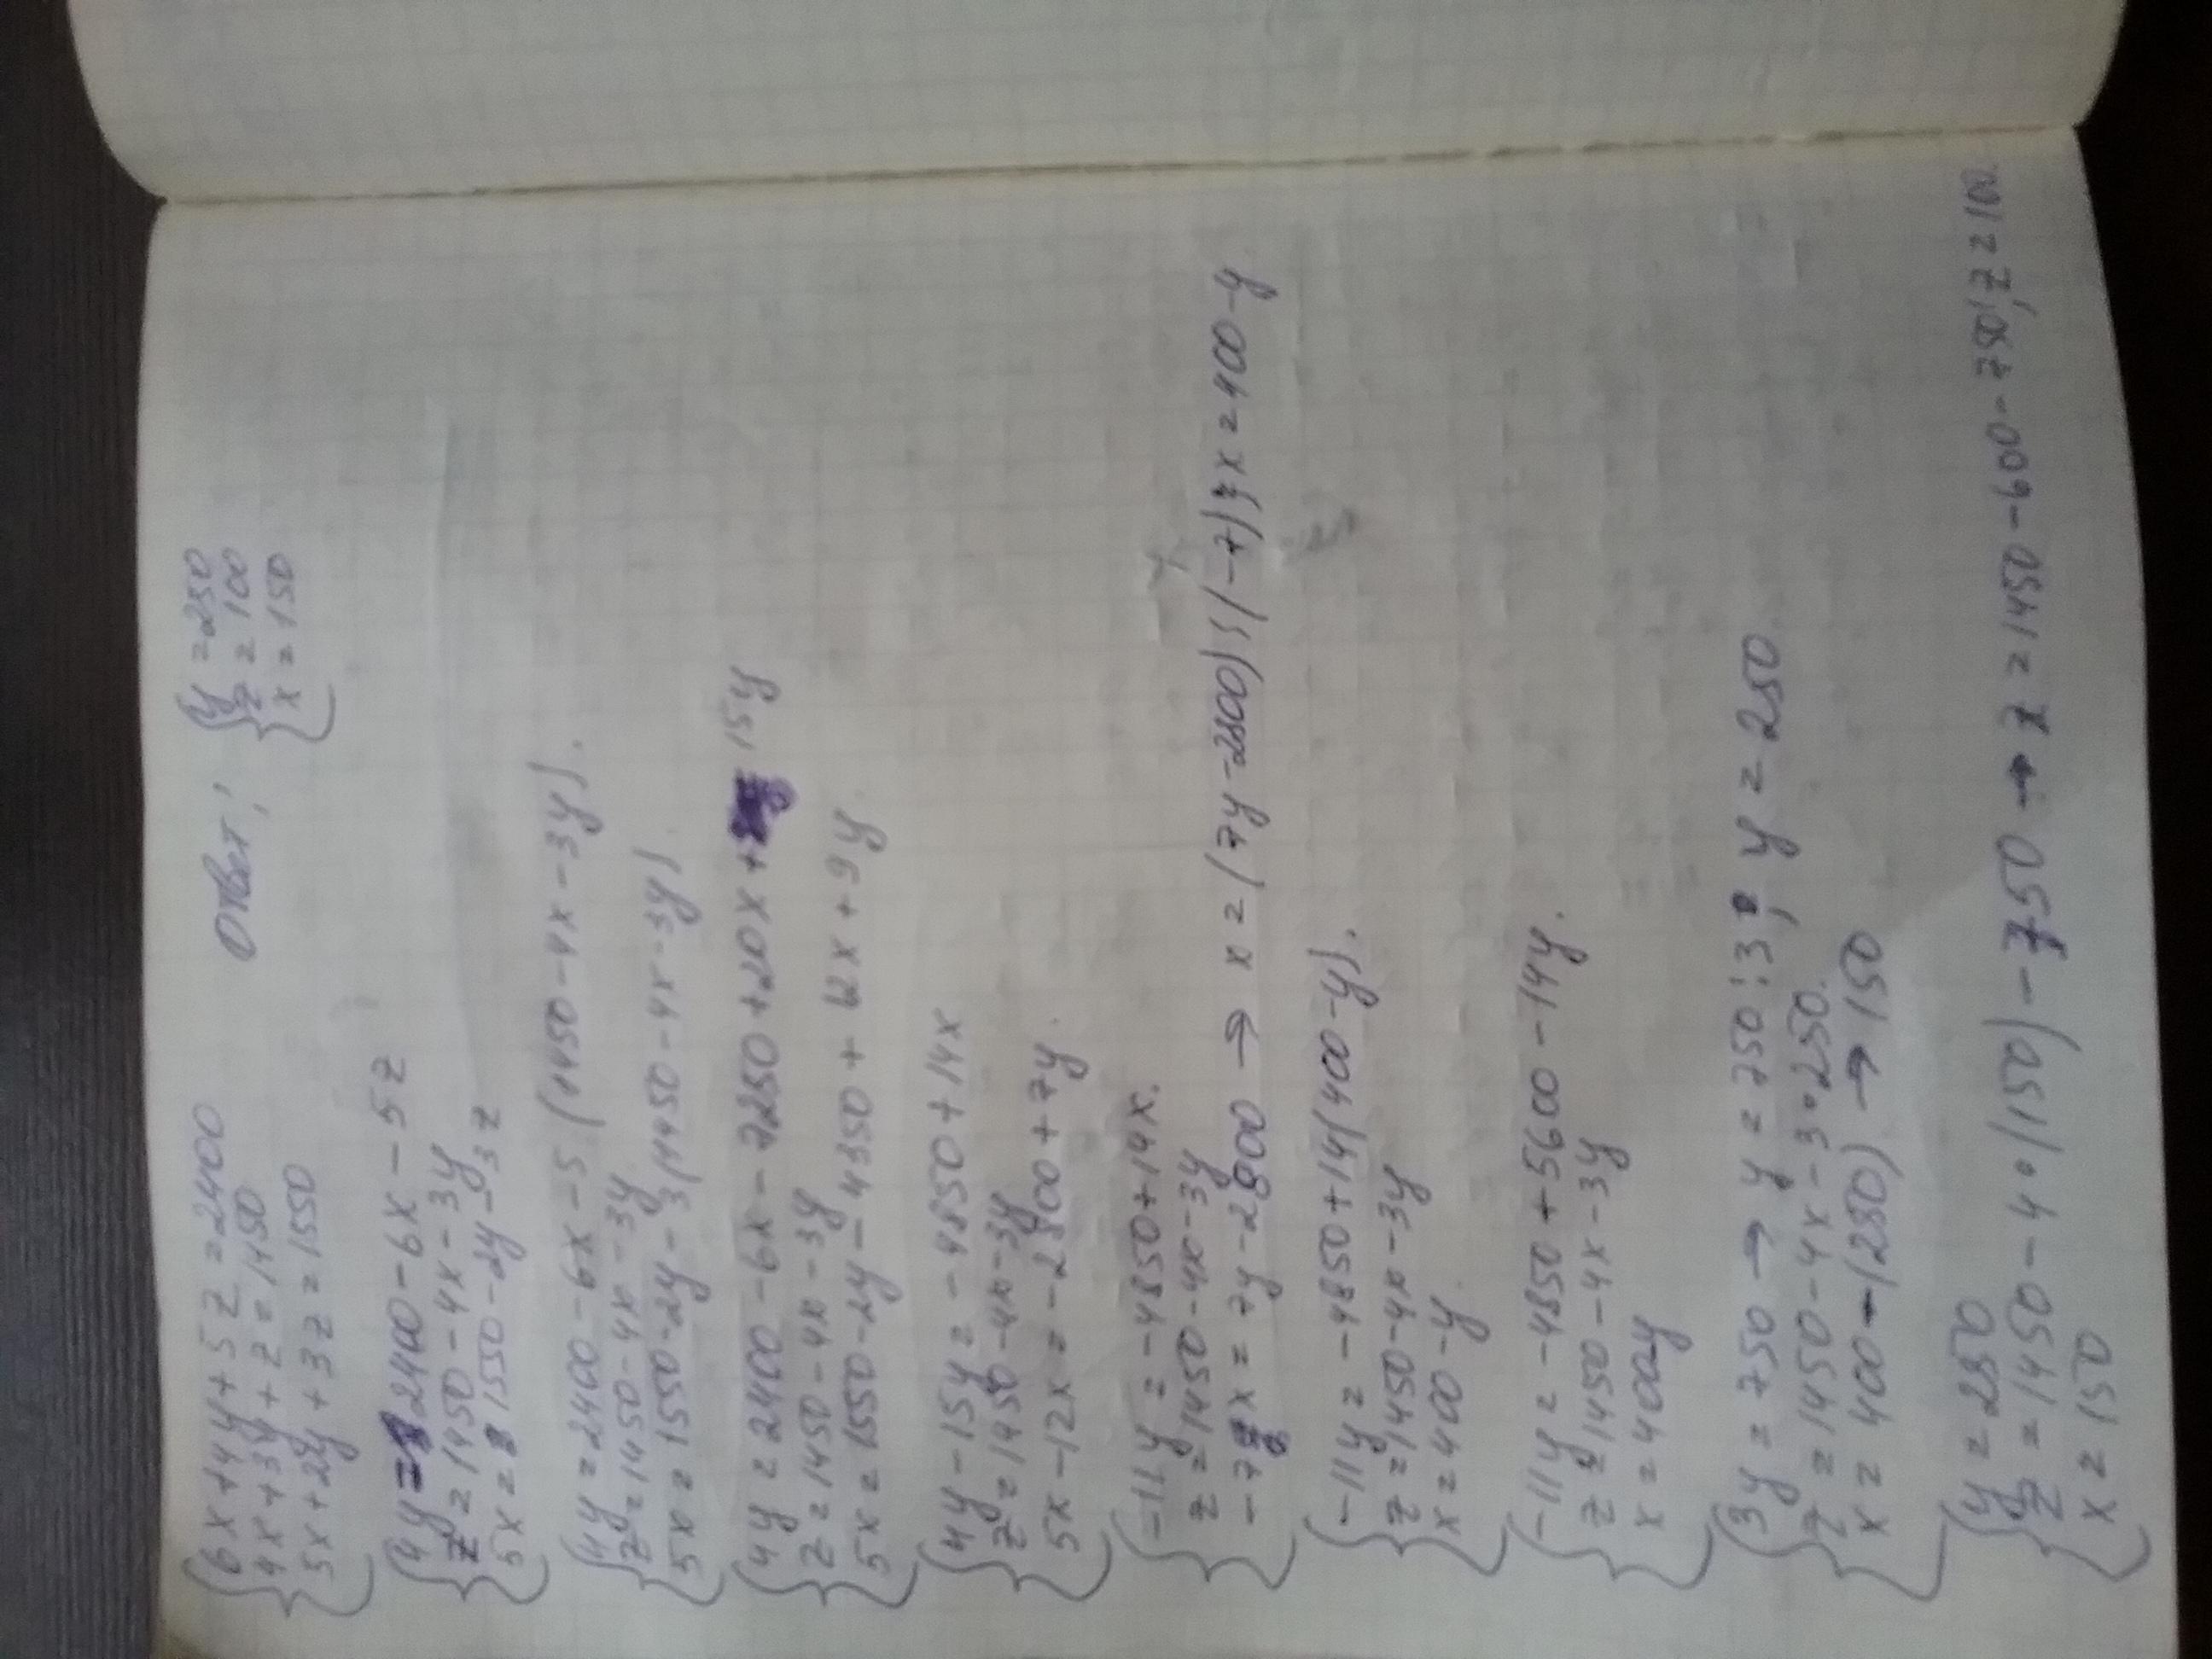 6x+4y+5z=2400
4x+3y+z=1450
5x+2y+3z=1550
Ответ:
y=250
z=100
x=150
4y=2400-6x-5z
z=1450-4x-3y
5x=1550-2y-3z
4y=2400-6x-5(1450-4x-3y).
z=1450-4x-3y
5x=1550-2y-3(1450-4x-3y).
4y=2400-6x-7250+20x+15y
z=1450-4x-3y
5x=1550-2y-4350+12x+9y
4y-15y=-4850+14x
z=1450-4x-3y
5x-12x=-2800+7y
-11y=-4850+14x.
z=1450-4x-3y
-7x=7y-2800→x=(7y-2800):(-7); x=400-y
-11y=-4850+14(400-y).
z=1450-4x-3y
x=400-y
-11y=-4850+5600-14y.
z=1450-4x-3y
x=400-y
3y=750→y=750:3; y=250
z=1450-4x-3·250.
x=400-(250)→150
y=250
z=1450-4·(150)-750→z=1450-600-750; z=100.
x=150